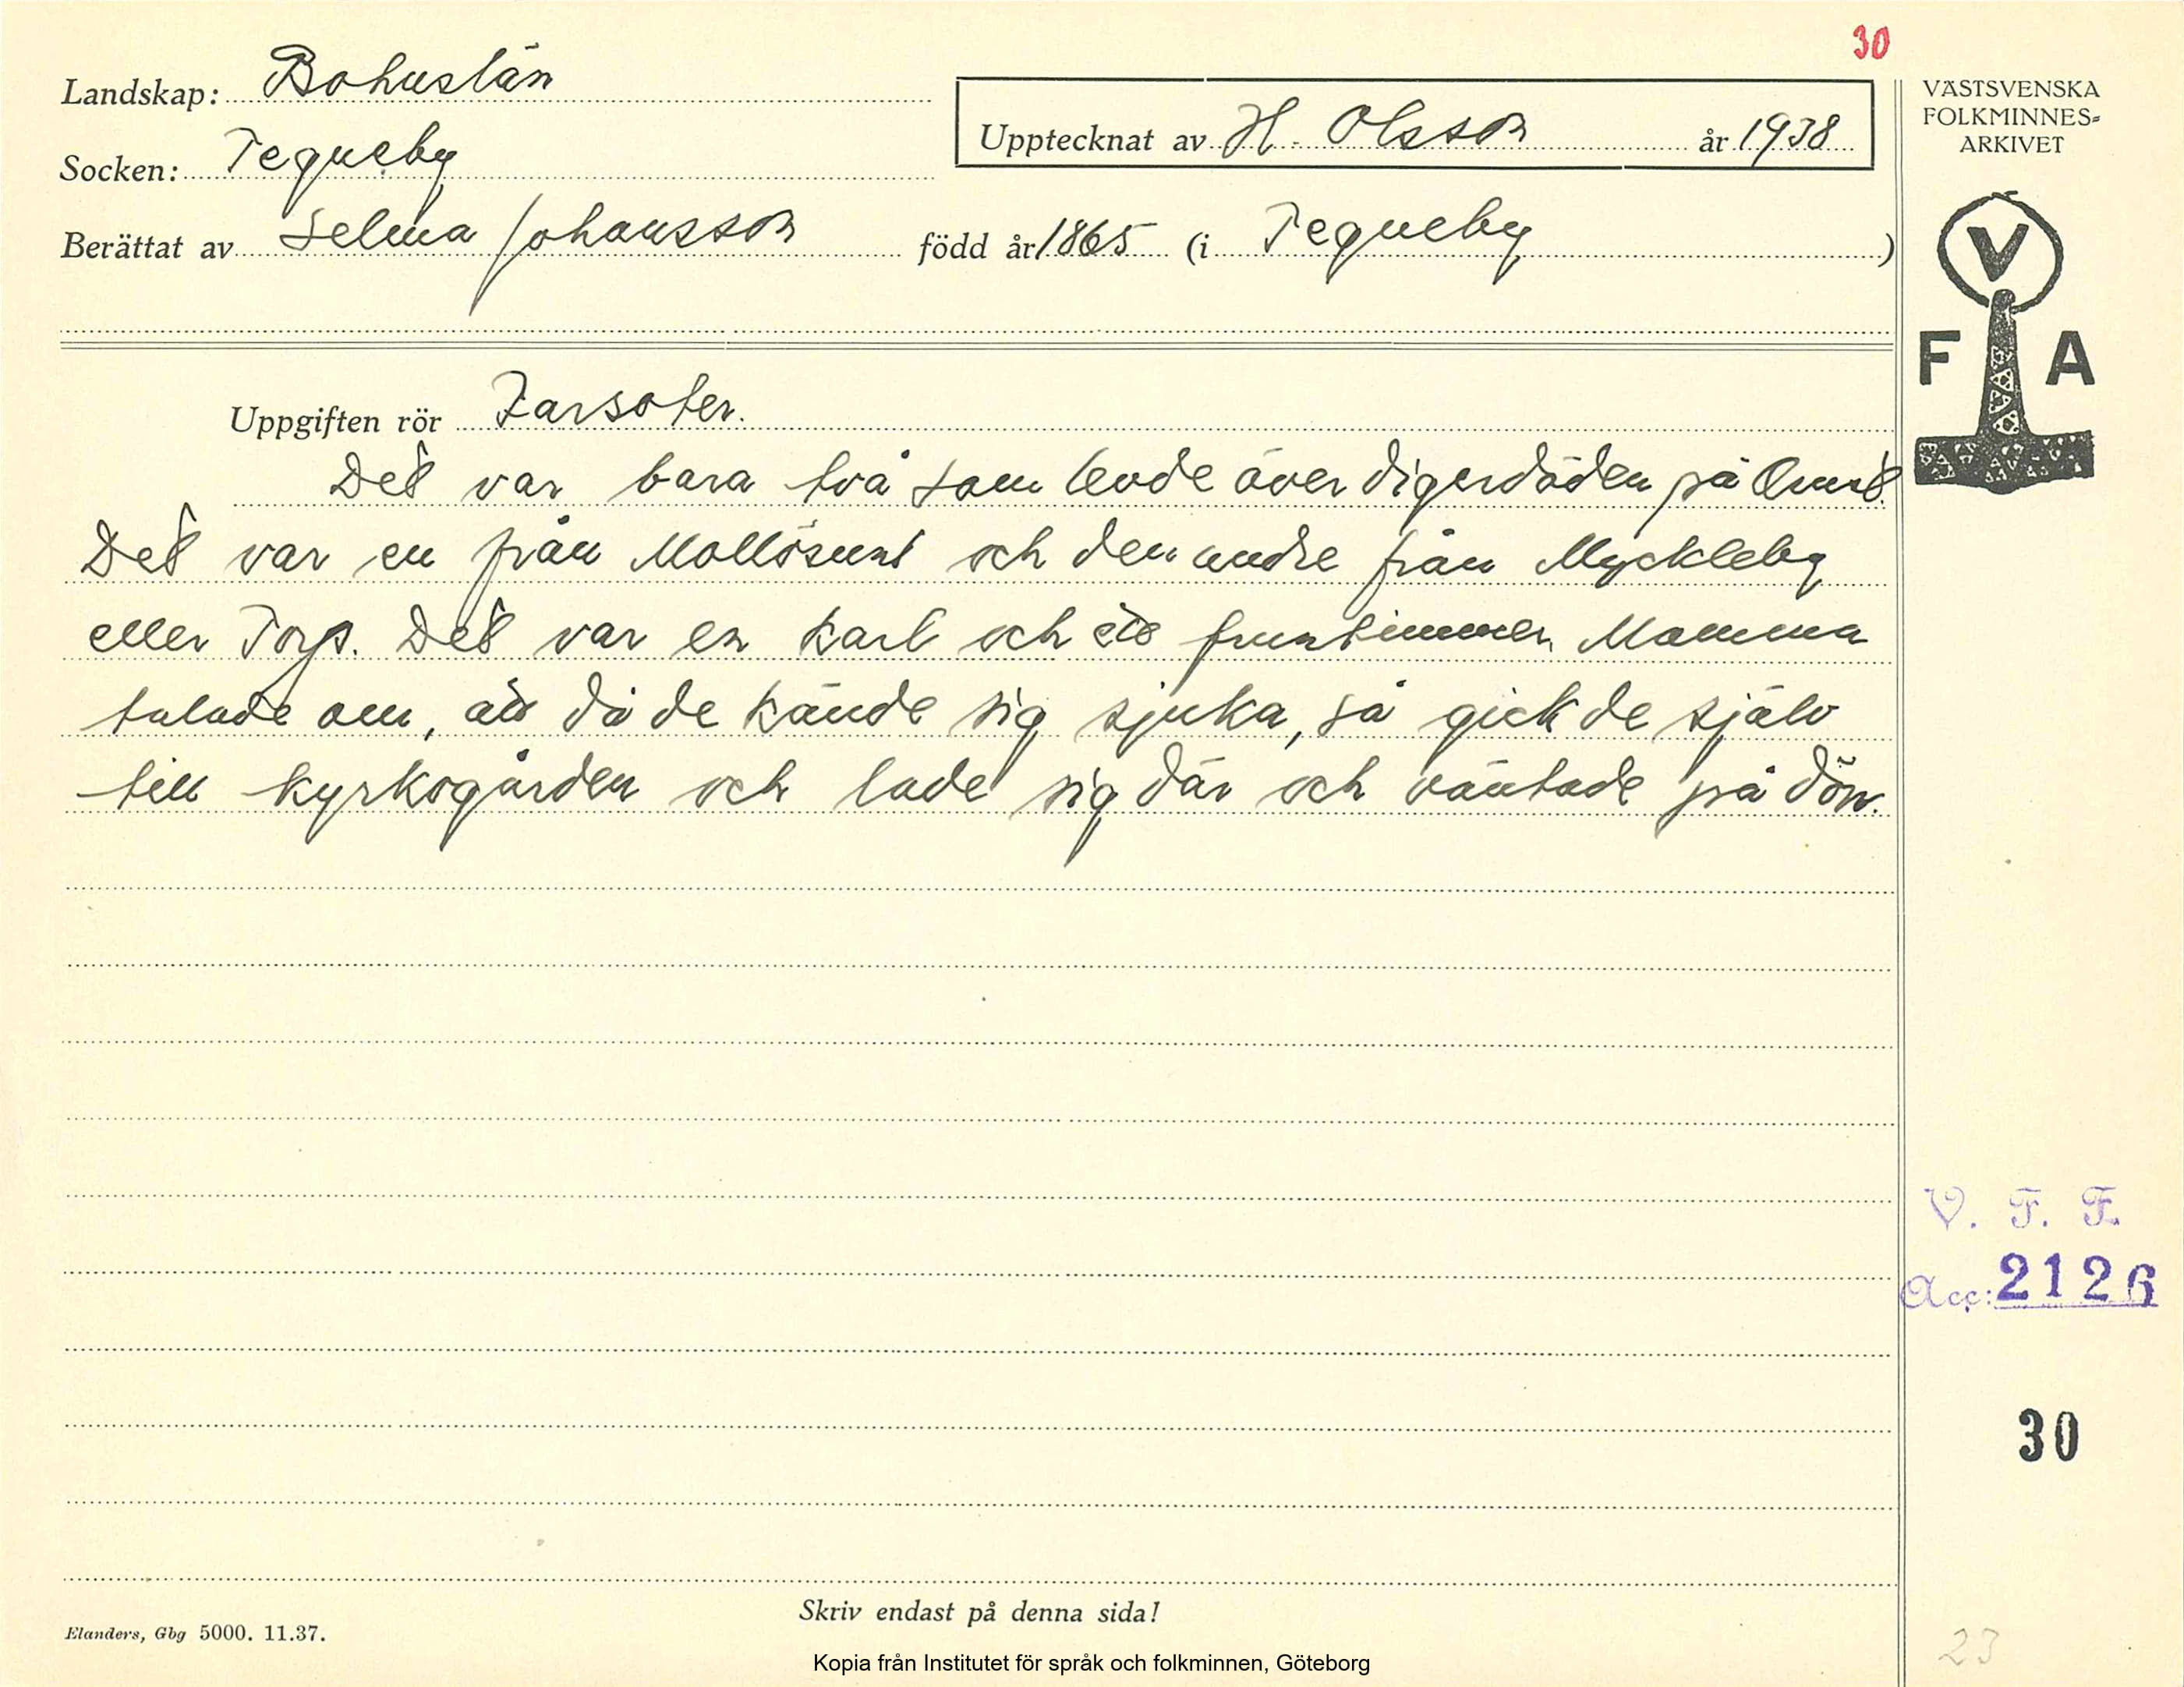 30
Landskap: Bohuslän
Upptecknat av H. Olsson år 1938
VÄSTSVENSKA
FOLKMINNES=
ARKIVET
Socken: Tegneby
Berättat av Selma Johansson född år 1865 (i Tegneby)
V
F A
Uppgiften rör Farsoter.
Det var bara två som levde över digerdöden på Orust.
Det var en från Mollösund och den andre från Myckleby
eller Torp. Det var en karl och ett fruntimmer. Mamma
talade om, att då de kände sig sjuka, så gick de själv
till kyrkogården och lade sig där och väntade på dön.
V. F. F.
Acc: 2126
30
Skriv endast på denna sida!
Elanders, Gbg 5000. 11.37.
23
Kopia från Institutet för språk och folkminnen, Göteborg